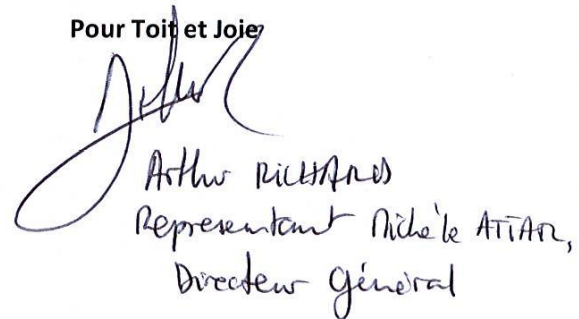 Pour Toit et Joie
Arthur RICHARD
Representant Michèle ATTAR,
Directeur Général